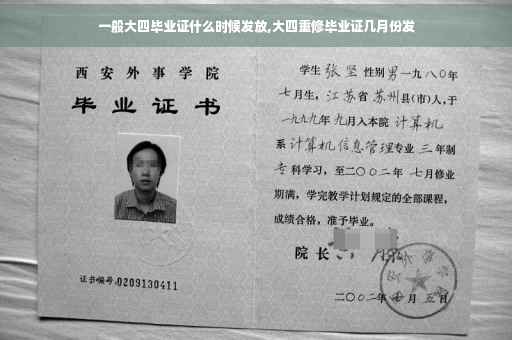 一般大四毕业证什么时候发放,大四重修毕业证几月份发
西安外事学院
毕业证书
证书编号:0209130411
学生张坚性别男一九八〇年
七月生，江苏省苏州县(市)人,于
一九九九年九月入本院计算机
系计算机信息管理专业三年制
专科学习，至二〇〇二年七月修业
期满，学完教学计划规定的全部课程，
成绩合格，准予毕业。
院长
二〇〇二年 月五日